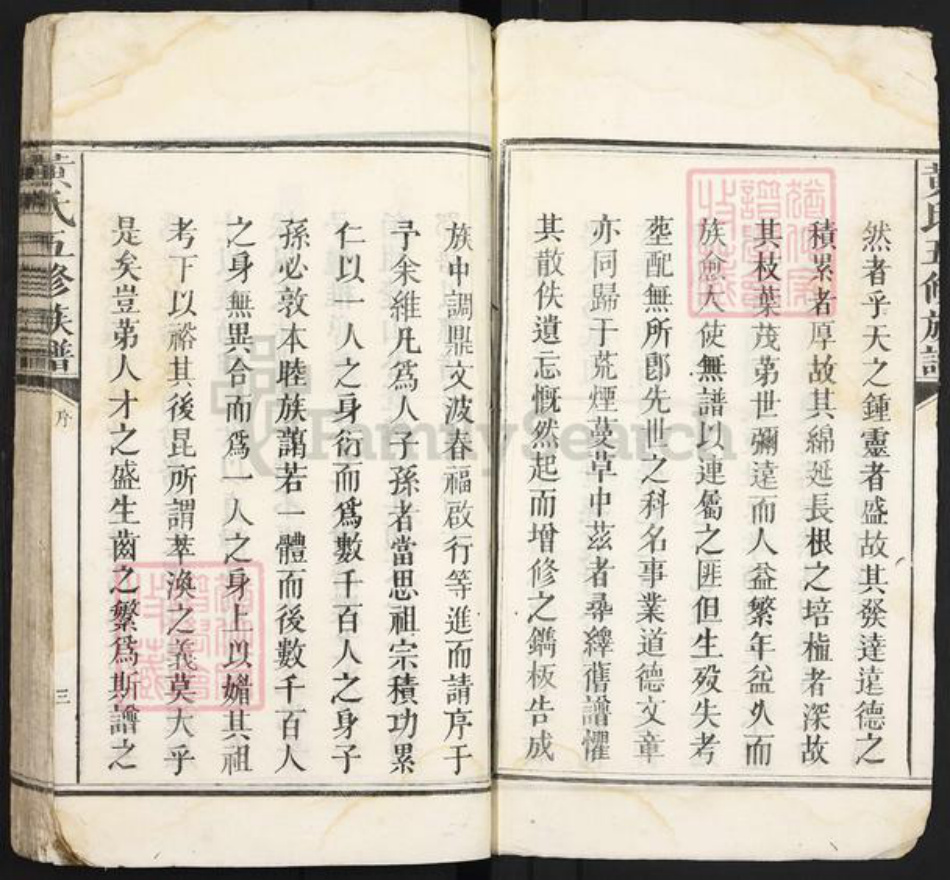 黃氏五修族譜
然者乎天之鍾靈者盛故其發達遠德之
積累者厚故其綿延長根之培植者深故
其枝葉茂苐世彌遠而人益繁年益久而
族愈大使無譜以連屬之匪但生殁失考
塟配無所卽先世之科名事業道德文章
亦同歸于荒煙蔓草中茲者尋繹舊譜懼
其散佚遺忘慨然起而增修之鐫板告成
族中調鼎文波春福啟行等進而請序于
予余維凡爲人子孫者當思祖宗積功累
仁以一人之身衍而爲數千百人之身子
孫必敦本睦族藹若一體而後數千百人
之身無異合而爲一人之身上以媚其祖
考下以裕其後昆所謂萃渙之義莫大乎
是矣豈苐人才之盛生齒之繁爲斯譜之
黃氏五修族譜
序
三
FamilySearch